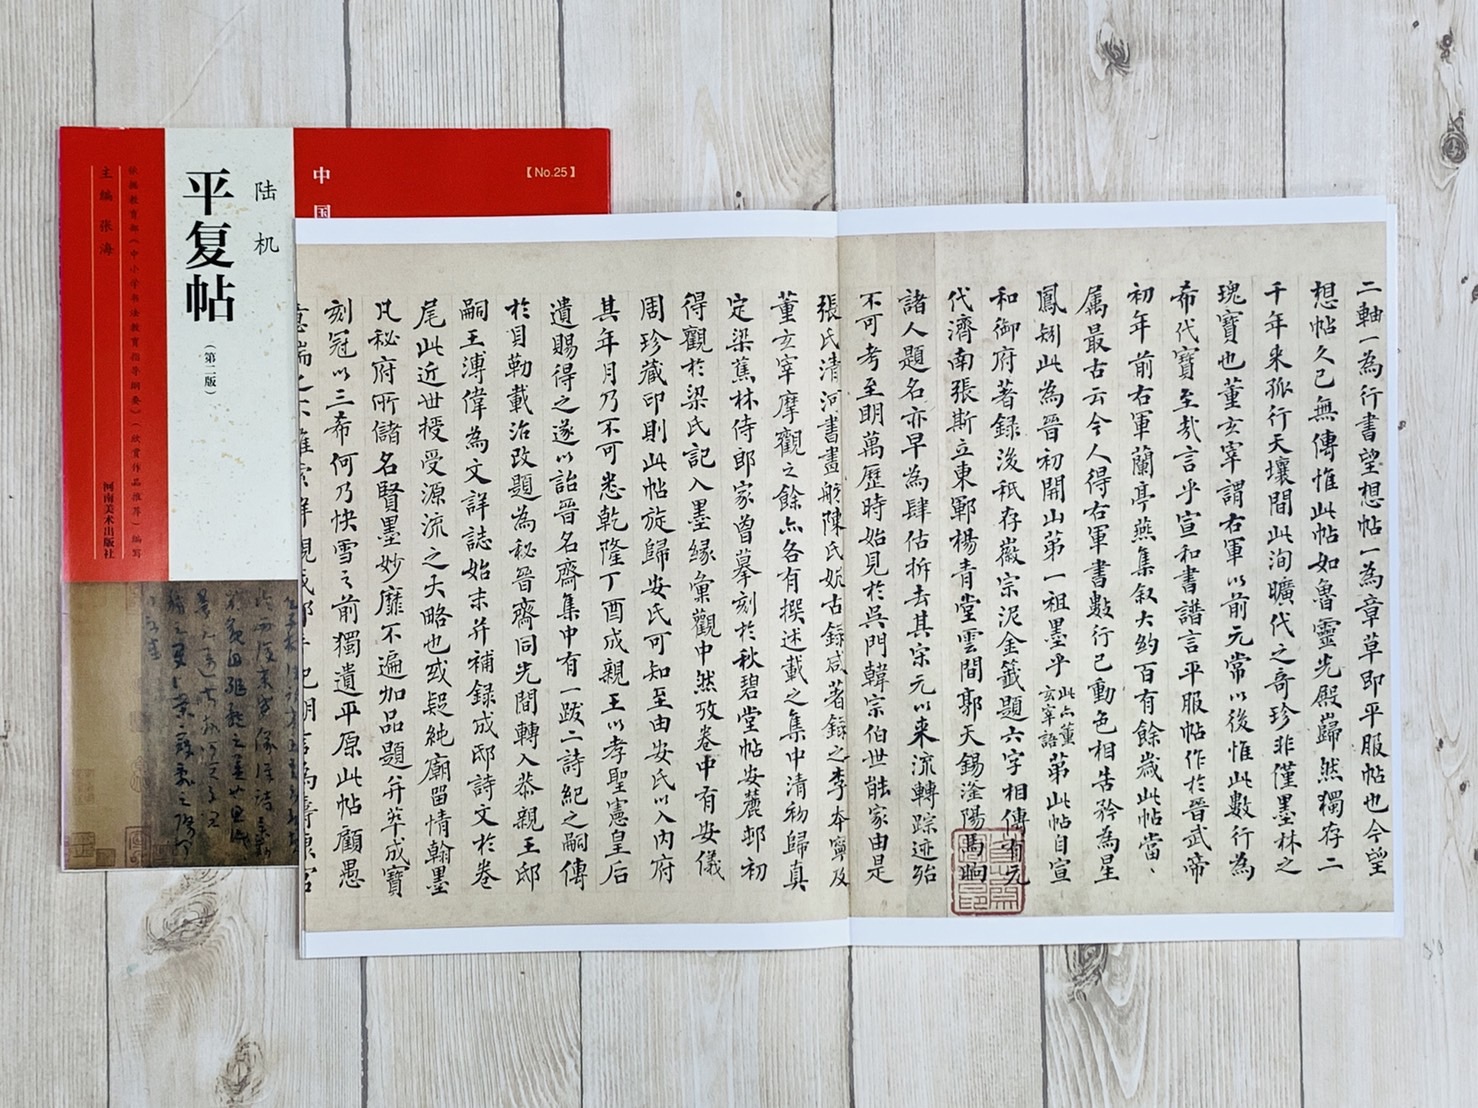 陆机
平复帖
(第二版)
主编 张海
依据教育部《中小学书法教育指导纲要》(欣赏作品推荐)编写
河南美术出版社
中国
【No.25】
二軸一為行書望想帖一為章草即平服帖也今望
想帖久已無傳惟此帖如魯靈光殿巋然獨存二
千年来孤行天壤間此洵曠代之奇珍非僅墨林之
瑰寶也董玄宰謂右軍以前元常以後惟此數行為
希代寶至哉言乎宣和書譜言平服帖作於晉武帝
初年前右軍蘭亭燕集叙大約百有餘歲此帖當、
属最古云今人得右軍書數行已動色相告矜為星
鳳矧此為晉初開山第一祖墨乎此亦董玄宰語苐此帖自宣
和御府著録後秖存徽宗泥金籤題六字相傳有元
代濟南張斯立東鄆楊青堂雲間郭天錫滏陽馬晌
諸人題名亦早為肆估拆去其宋元以来流轉踪迹殆
不可考至明萬歷時始見於吳門韓宗伯世能家由是
張氏清河書畫舫陳氏妮古録咸著録之李本寧及
董玄宰摩觀之餘亦各有撰述載之集中清初歸真
定梁蕉林侍郎家曾摹刻於秋碧堂帖安麓邨初
得觀於梁氏記入墨縁彙觀中然攷卷中有安儀
周珍藏印則此帖旋歸安氏可知至由安氏以入内府
其年月乃不可悉乾隆丁酉成親王以孝聖憲皇后
遺賜得之遂以詒晉名齋集中有一跋二詩紀之嗣傳
於目勒載治改題為秘晉齋同光間轉入恭親王邸
嗣王溥偉為文詳誌始末并補録成邸詩文於卷
尾此近世授受源流之大略也或疑純廟留情翰墨
凡秘府所儲名賢墨妙靡不遍加品題并萃成寶
刻冠以三希何乃快雪之前獨遺平原此帖顧愚